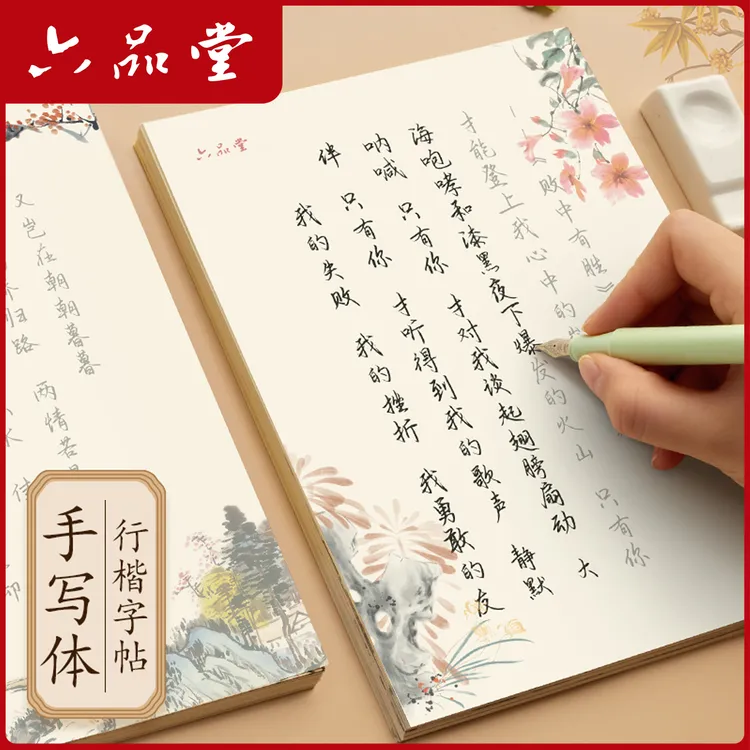 六品堂
六品堂
《败中有胜》
才能登上我心中的
海咆哮和漆黑夜下爆发的火山 只有你
呐喊 只有你 才对我谈起翅膀扇动 大
伴 只有你 才听得到我的歌声 静默
我的失败 我的挫折 我勇敢的友
又岂在朝朝暮暮
归路 两情若
行楷字帖
手写体